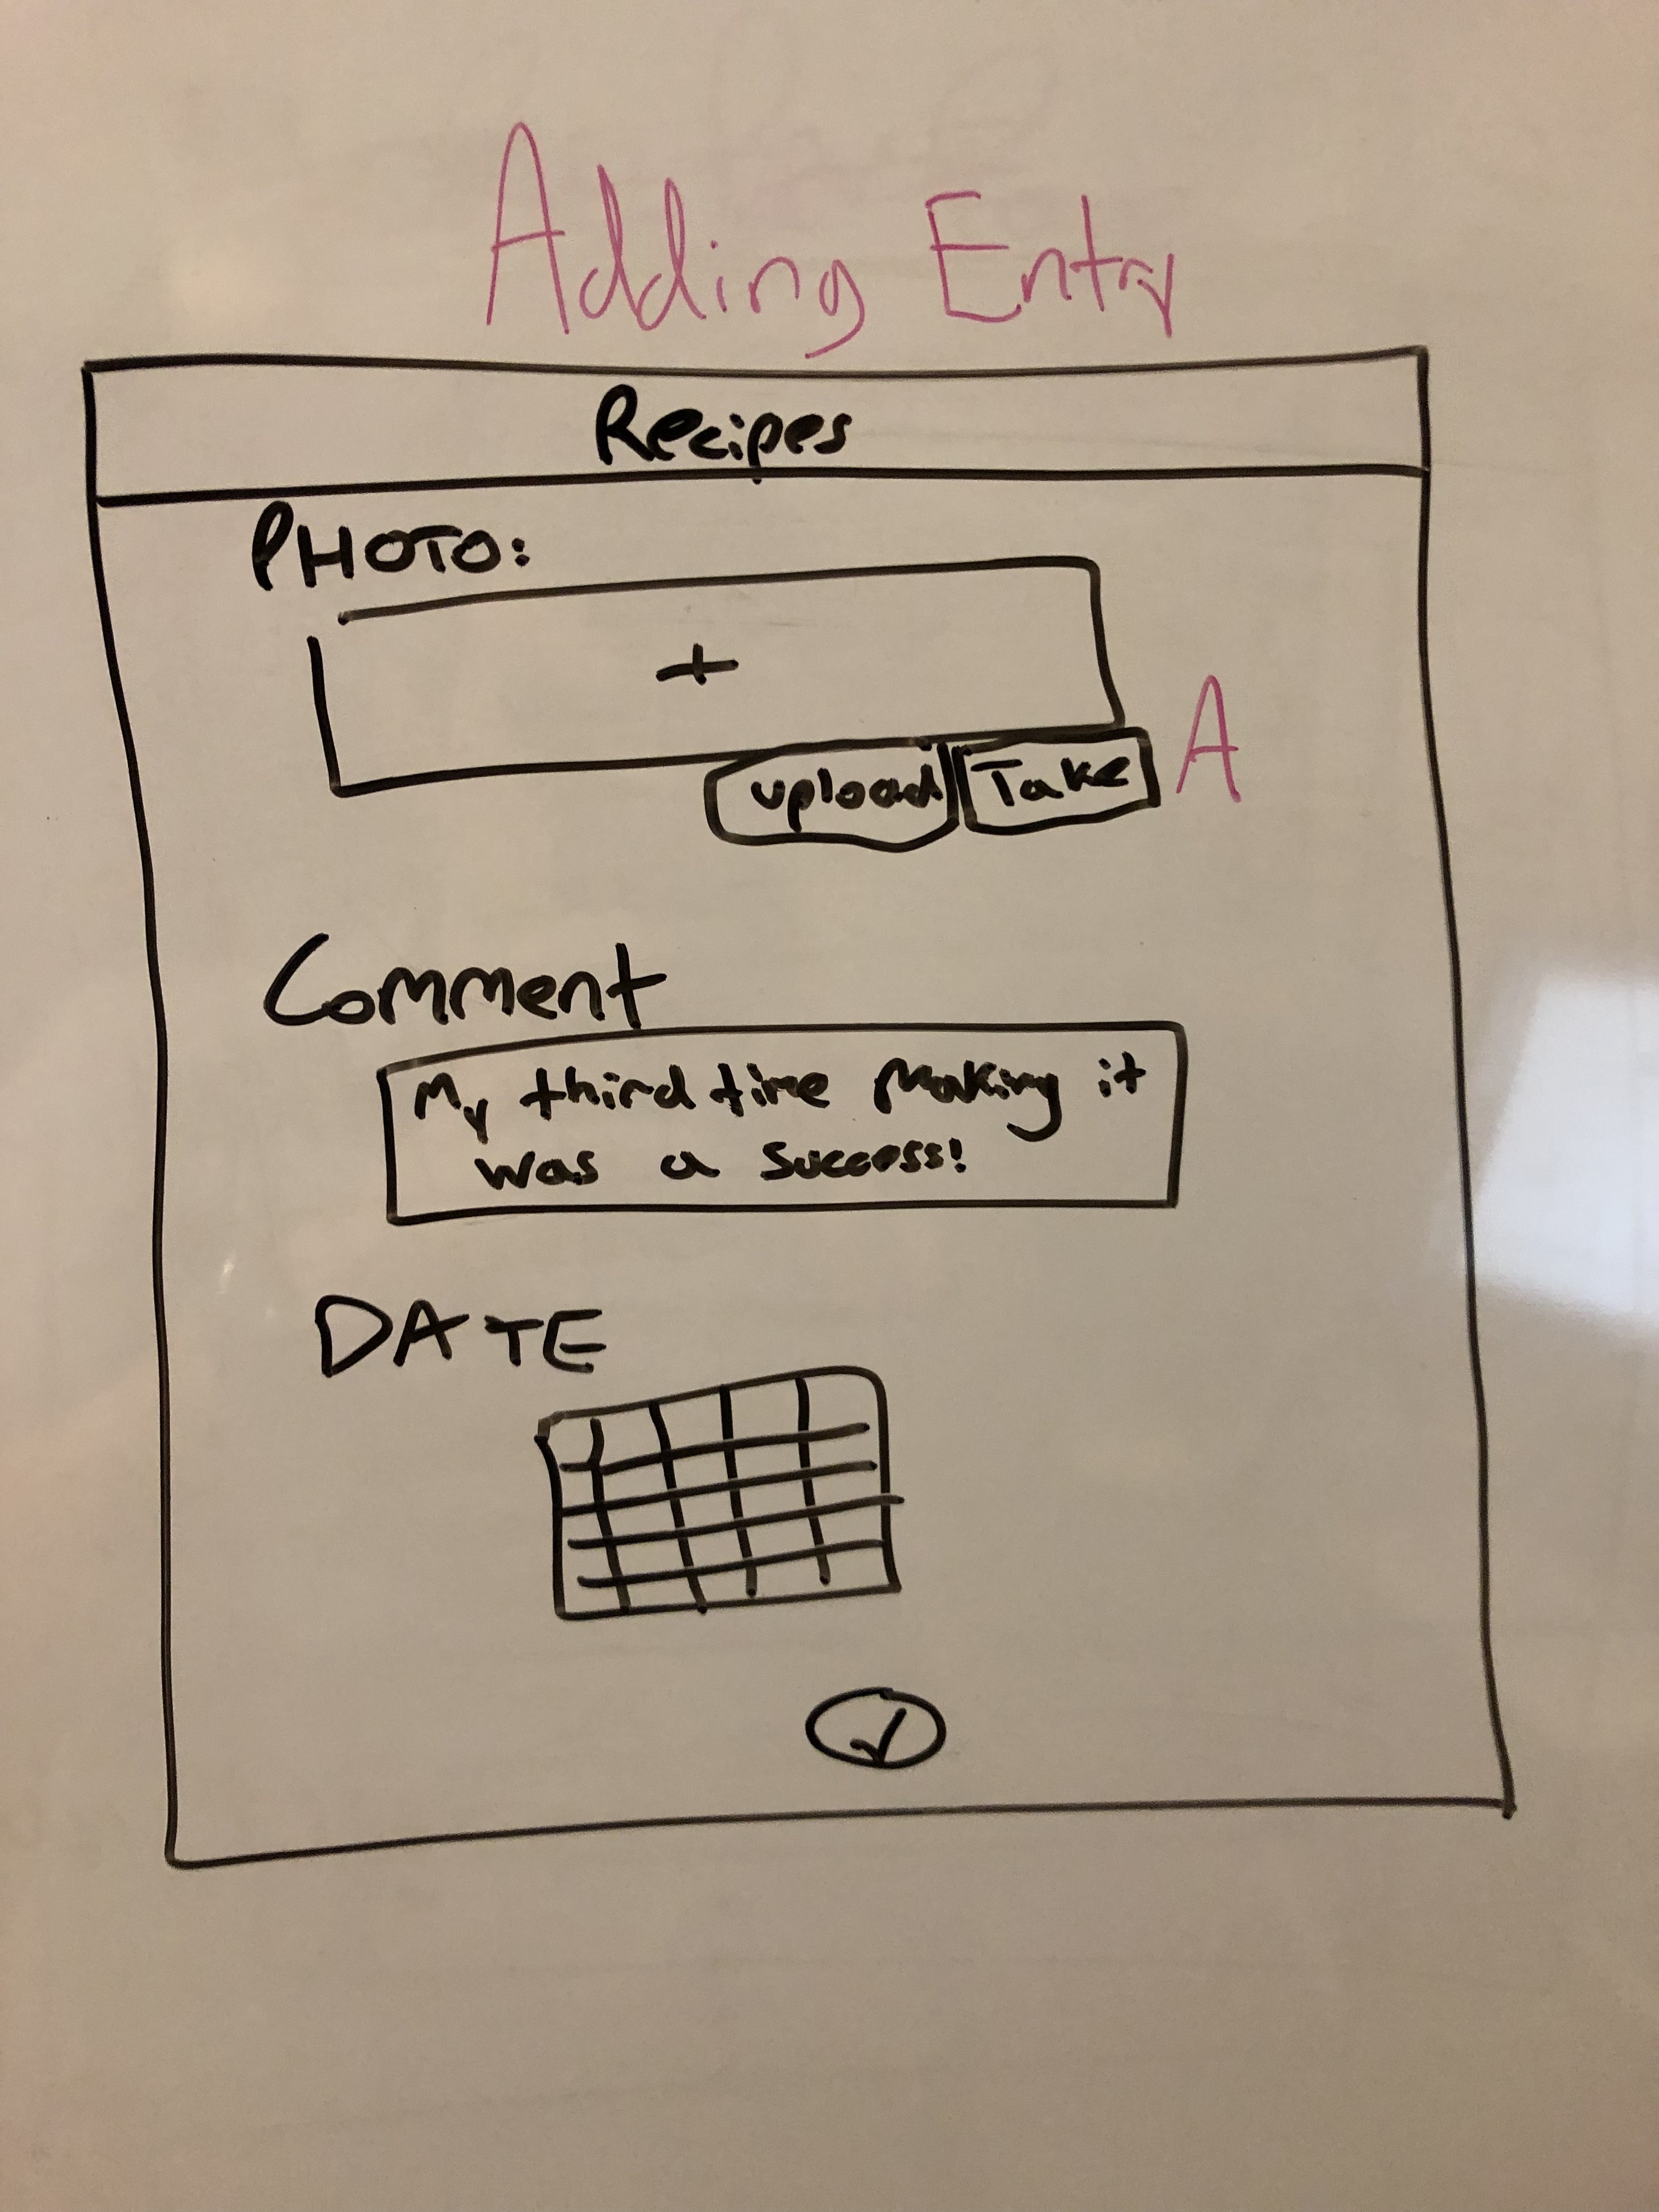 Adding Entry
Recipes
PHOTO:
+
upload Take A
Comment
My third time Making it
was a success!
DATE